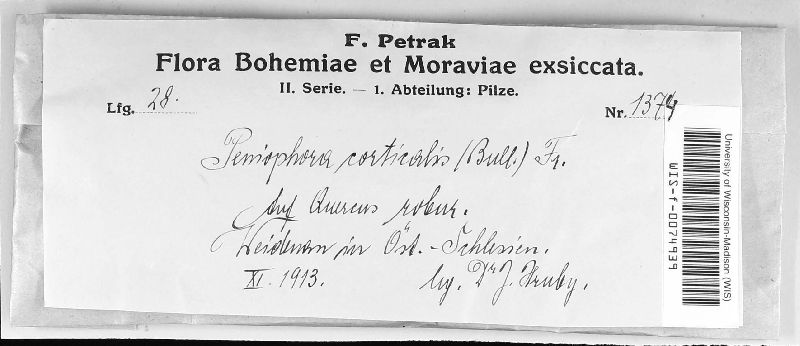 F. Petrak
Flora Bohemiae et Moraviae exsiccata.
II. Serie. — 1. Abteilung: Pilze.
Lfg. 28.
Nr. 1374
Peniophora corticalis (Bull.) Fr.
Auf Quercus robur.
Weidenau in Öst.-Schlesien.
XI. 1913.
leg. Dr J. Hruby.
University of Wisconsin-Madison (WIS)
WIS-f-0074939